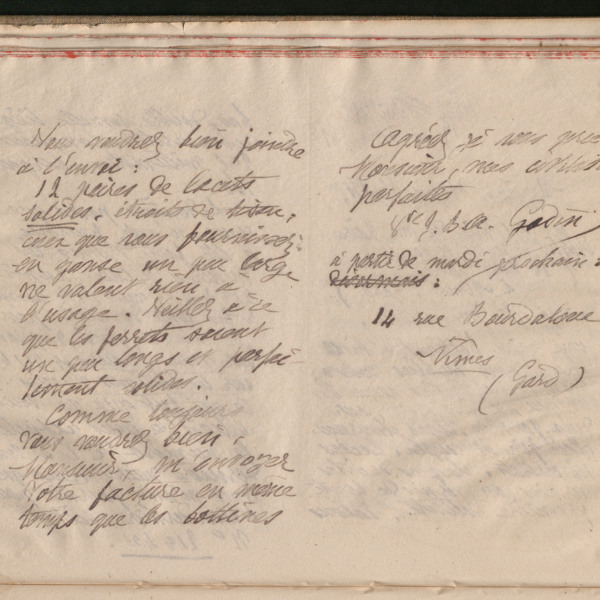 Vous voudrez bien joindre
à l'envoi :
12 paires de lacets
solides, étroits de tissu,
ceux que vous fournissez
en ganse un peu large
ne valent rien à
l'usage. Veillez à ce
que les ferrets soient
un peu longs et parfai-
tement solides.
Comme toujours
vous voudrez bien,
Monsieur, m'envoyer
votre facture en même
temps que les bottines
Agréez, je vous prie
Monsieur, mes civilités
parfaites
J. B. A. Godin
à partir de mardi prochain :
désormais :
14 rue Bourdaloue
Nîmes
(Gard)